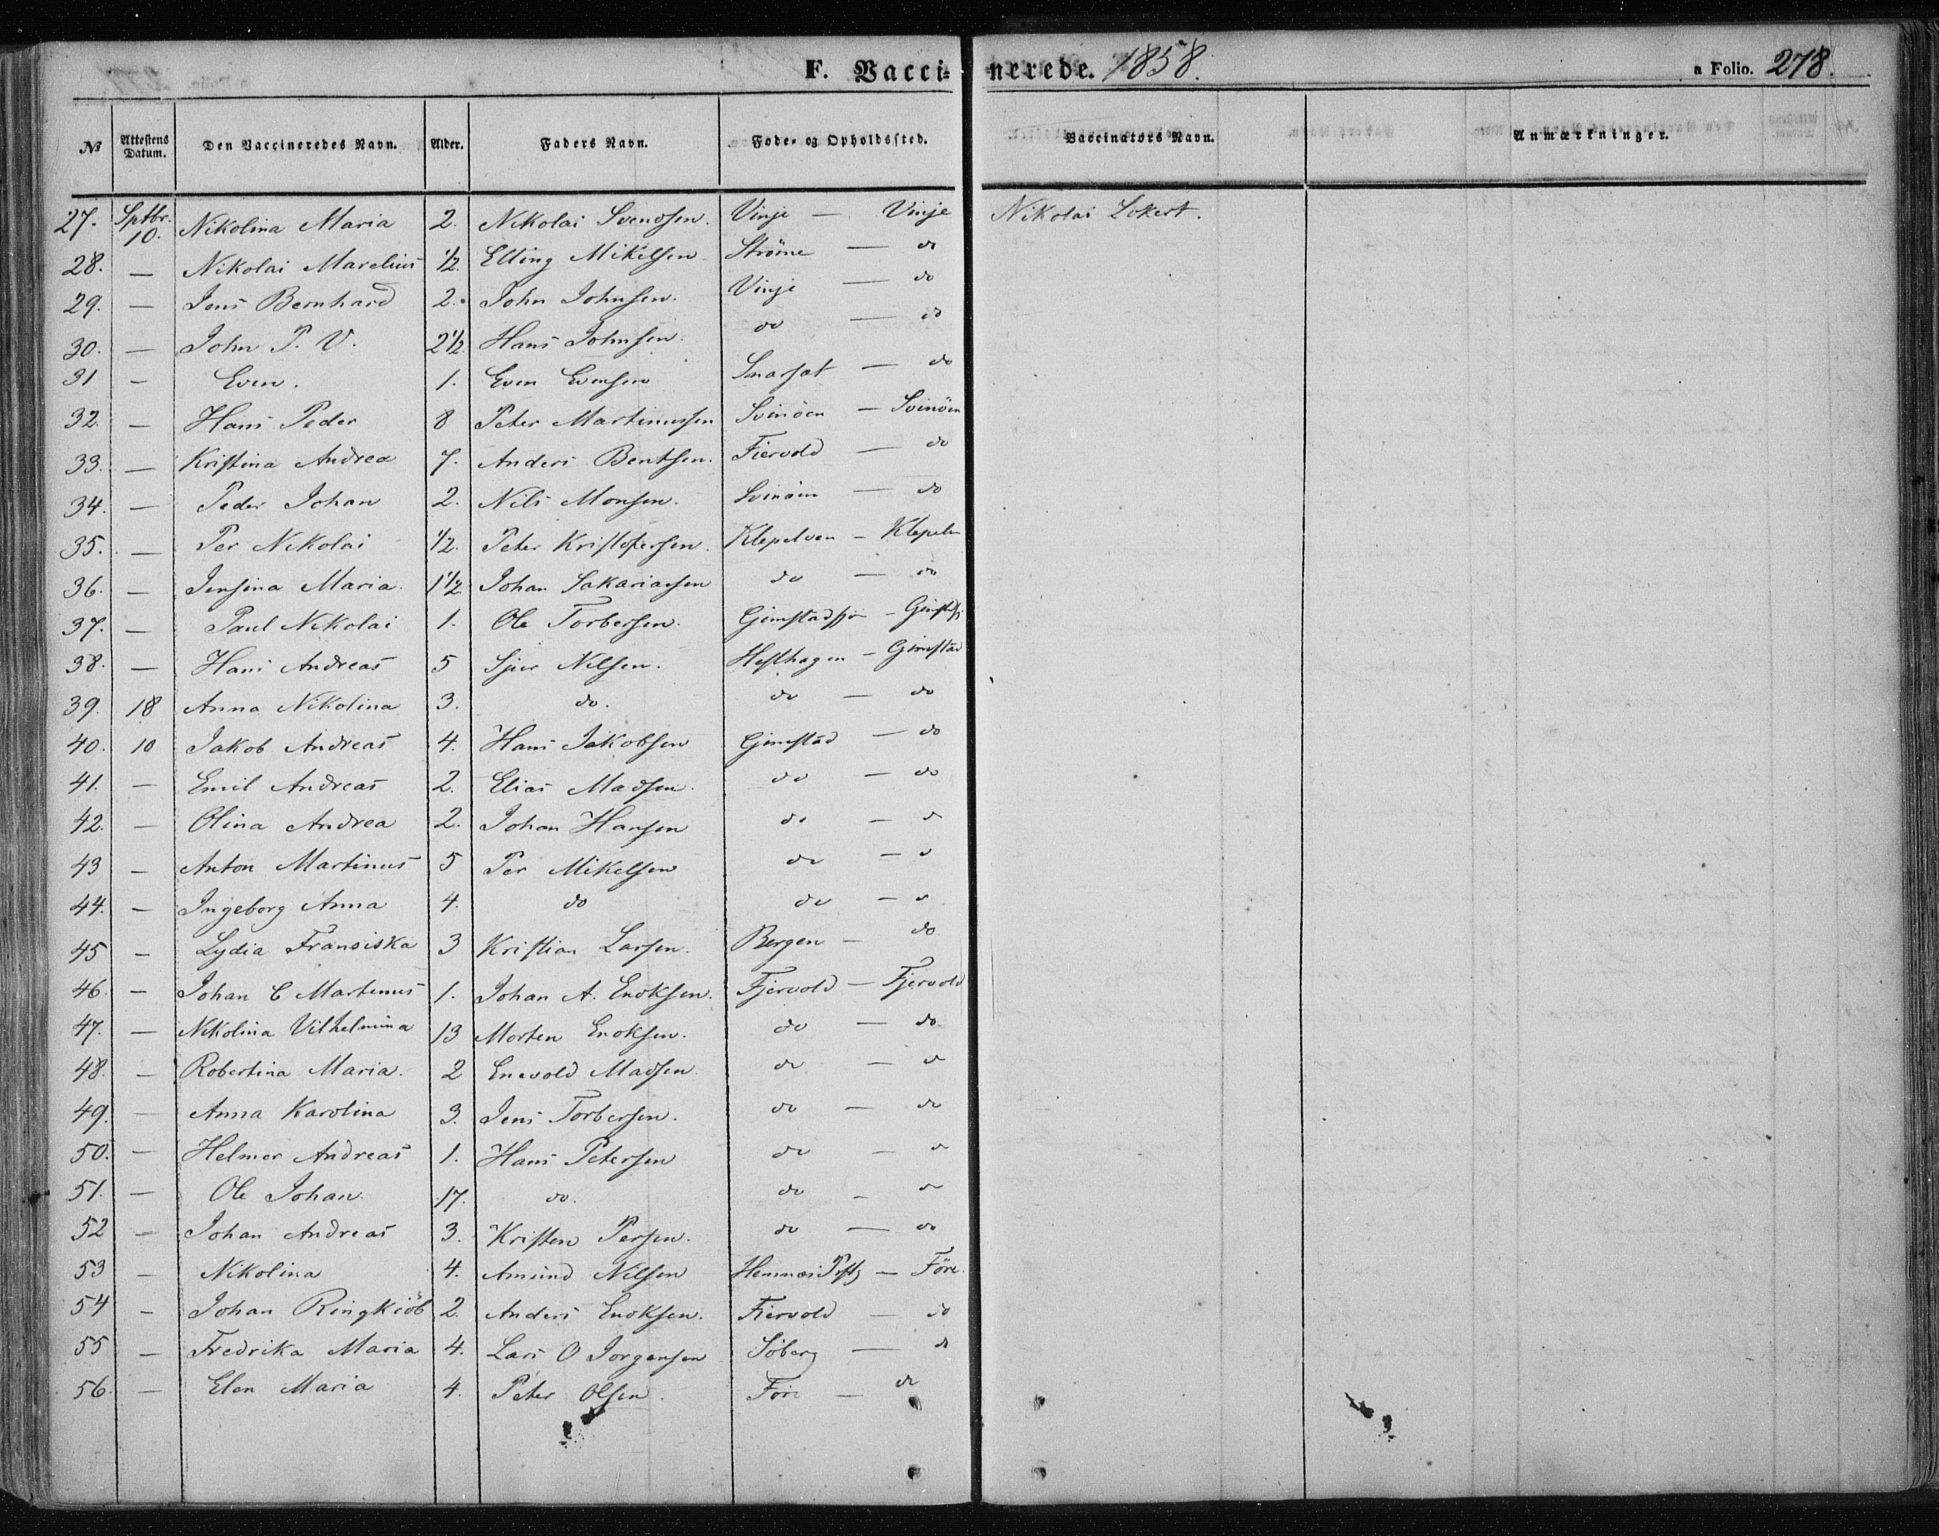 F. Vaccinerede. 1858. a Folio. 278.
№ Attestens Datum. Den Vaccineredes Navn. Alder. Faders Navn. Føde- og Opholdssted. Vaccinators Navn. Anmærkninger.
27. Sptbr. 10. Nikolina Maria 2. Nikolai Svendsen. Vinje — Vinje Nikolai Lokert.
28. — Nikolai Marelius 1/2. Elling Mikelsen Ströme — do
29. — Jens Bernhard 2. John Johnsen. Vinje — do
30. — John P. V. 2 1/2 Hans Johnsen. do — do
31 — Even. 1. Even Evensen Smarsat — do
32. — Hans Peder 8 Peter Martinussen Svinöen — Svinöen
33. — Kristina Andrea 7. Anders Bentsen. Fiervold — do
34. — Peder Johan 2. Nils Monsen. Svinöen — do
35. — Per Nikolai 1/2. Peter Kristofersen. Klepelven — Klepelv
36. — Jensina Maria. 1 1/2 Johan Sakariasen do — do
37. — Paul Nikolai 1. Ole Torbersen. Gimstadfj —
38. — Hans Andreas 5 Sjur Nilsen. Hesthagen — Gimstad
39. 18 Anna Nikolina 3. do. do — do
40. 10 Jakob Andreas 4. Hans Jakobsen Gimstad — do
41. — Emil Andreas 2. Elias Madsen. do — do
42. — Olina Andrea 2. Johan Hansen do — do
43 — Anton Martinus 5 Per Mikelsen do — do
44. — Ingeborg Anna 4. do do — do
45 — Lydia Fransiska 3 Kristian Larsen. Bergen — do
46. — Johan C Martinus 1. Johan A. Enoksen. Fjervold — Fjervold
47. — Nikolina Vilhelmina 13 Morten Enoksen. do — do
48. — Robertina Maria. 2 Enevold Madsen do — do
49. — Anna Karolina 3. Jens Torbersen. do — do
50. — Helmer Andreas 1. Hans Petersen do — do
51. — Ole Johan. 17. do. do — do
52 — Johan Andreas 3. Kristen Persen. do — do
53 — Nikolina 4. Amund Nilsen Hemnæs — Före.
54 — Johan Ringkiöb 2. Anders Enoksen. Fiervold — do
55 — Fredrika Maria 4. Lars O Jorgensen Söberg — do
56. — Elen Maria 4. Peter Olsen. Före — do